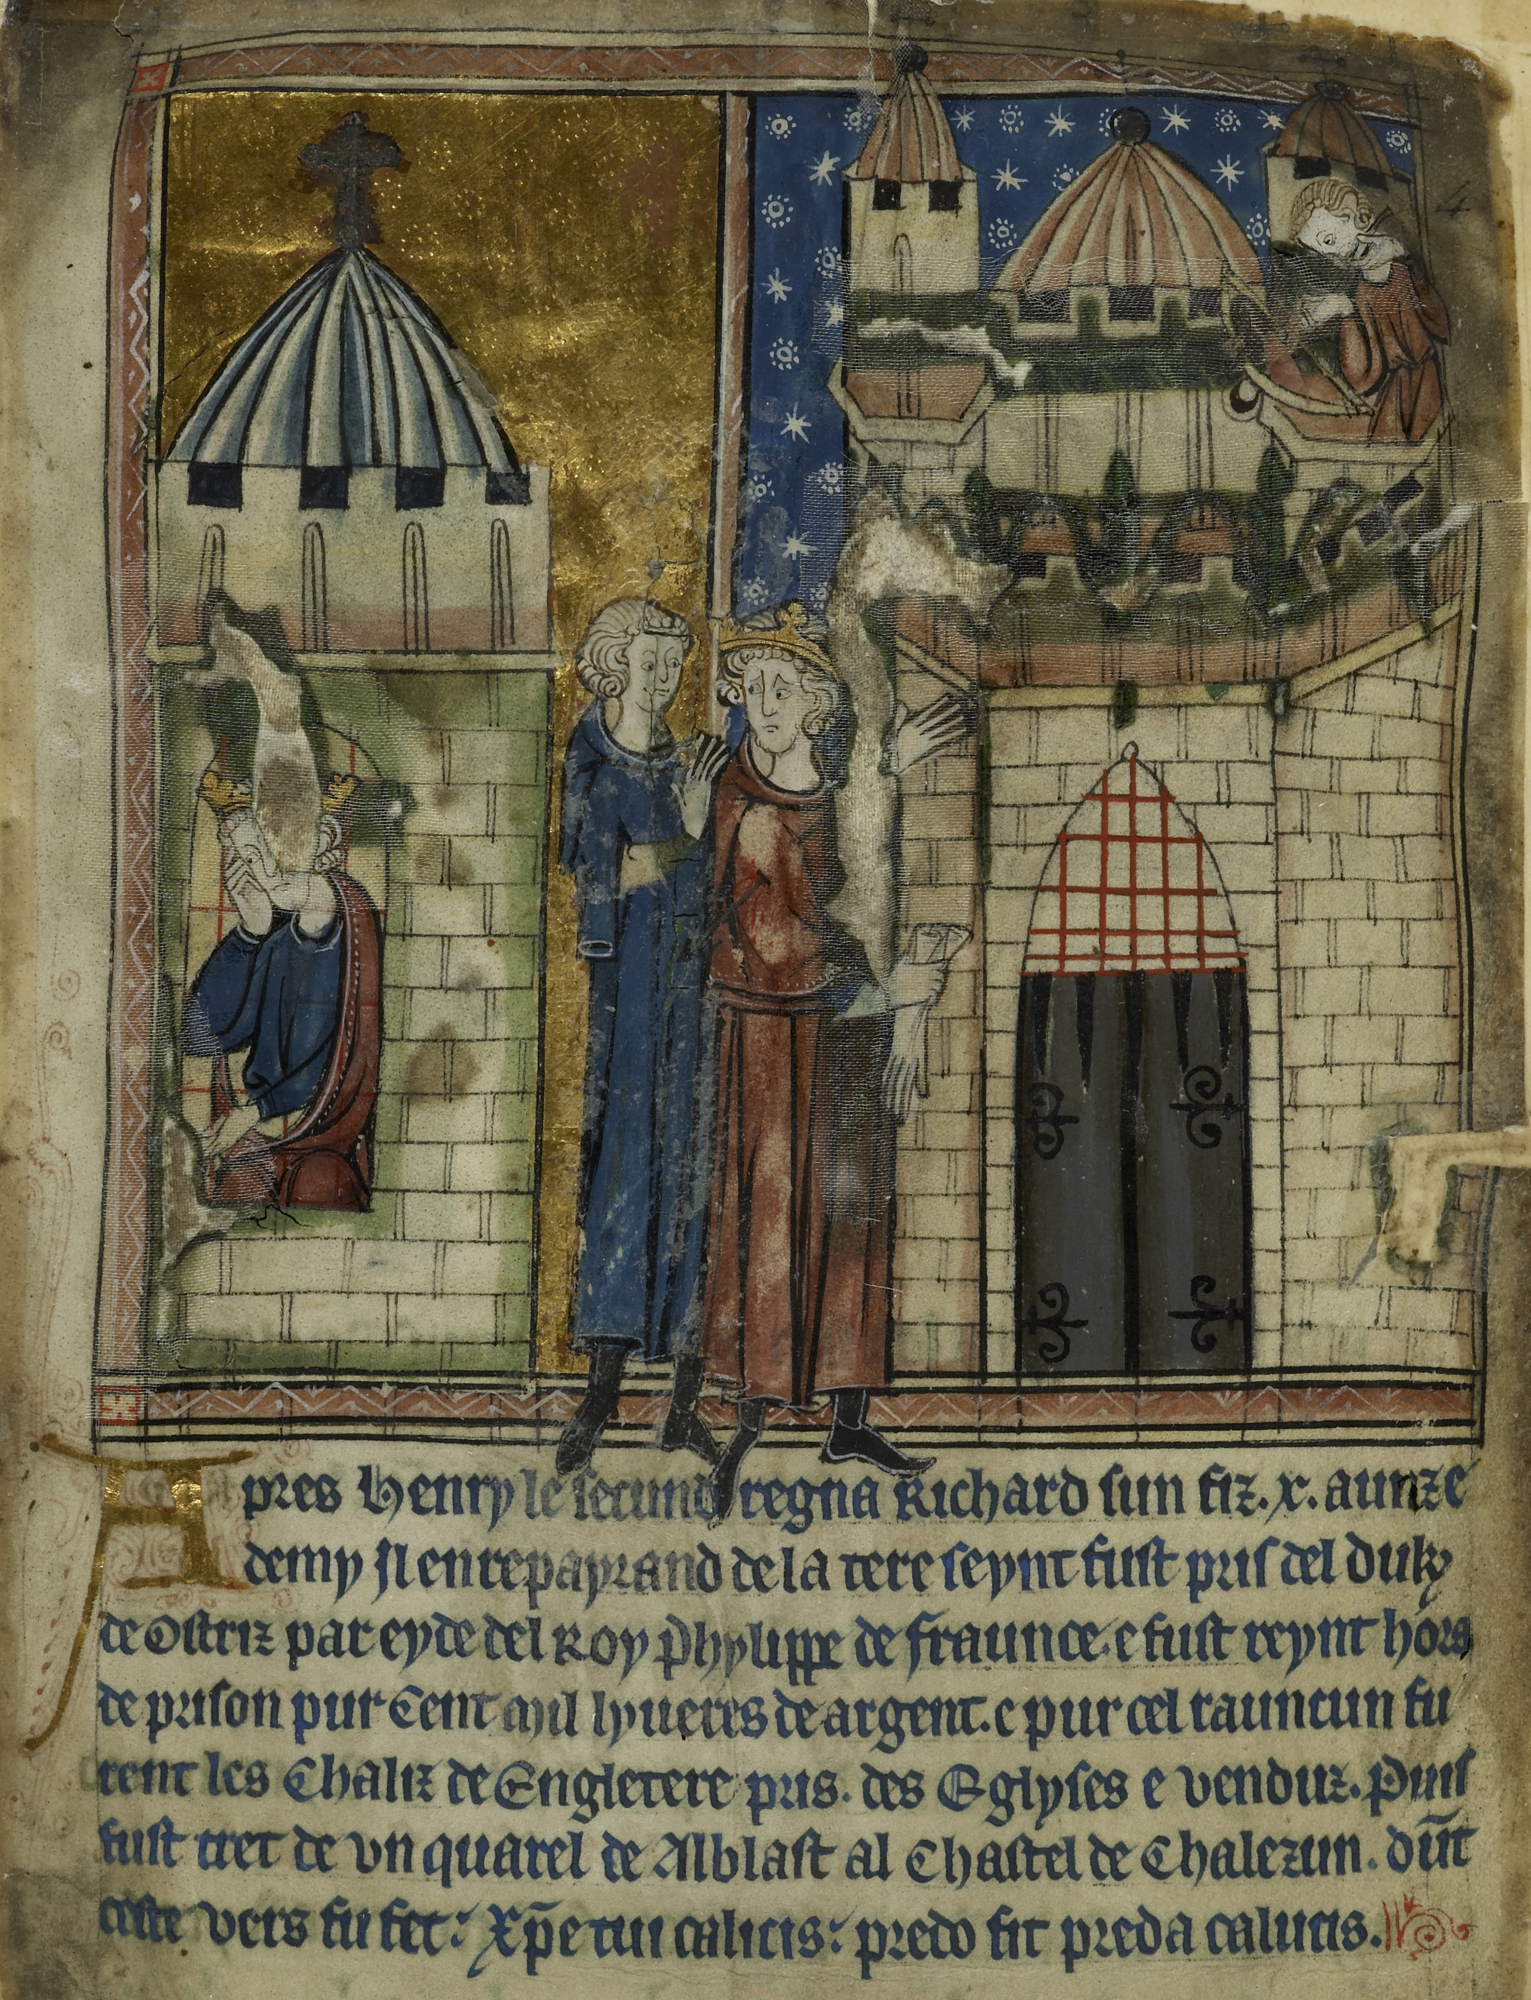 Apres Henry le secund regna Richard sun fiz. x. aunz e
demy Il en repayrand de la tere seynt fust pris del duk
de Ostriz par eyde del Roy Phylippe de fraunce. e fust reynt hors
de prison pur Cent Mil lyueres de argent. e pur cel raunçun fu
rent les Chaliz de Engletere pris. des Eglyses e venduz. Puis
fust tret de vn quarel de Alblast al Chastel de Chalezun. dūt
ceste vers fu fet: Xp̄e tui calicis: predo fit preda calucis.